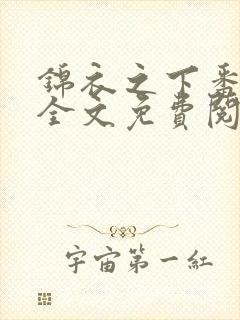 錦衣之下番
全文免費閱
宇宙第一紅